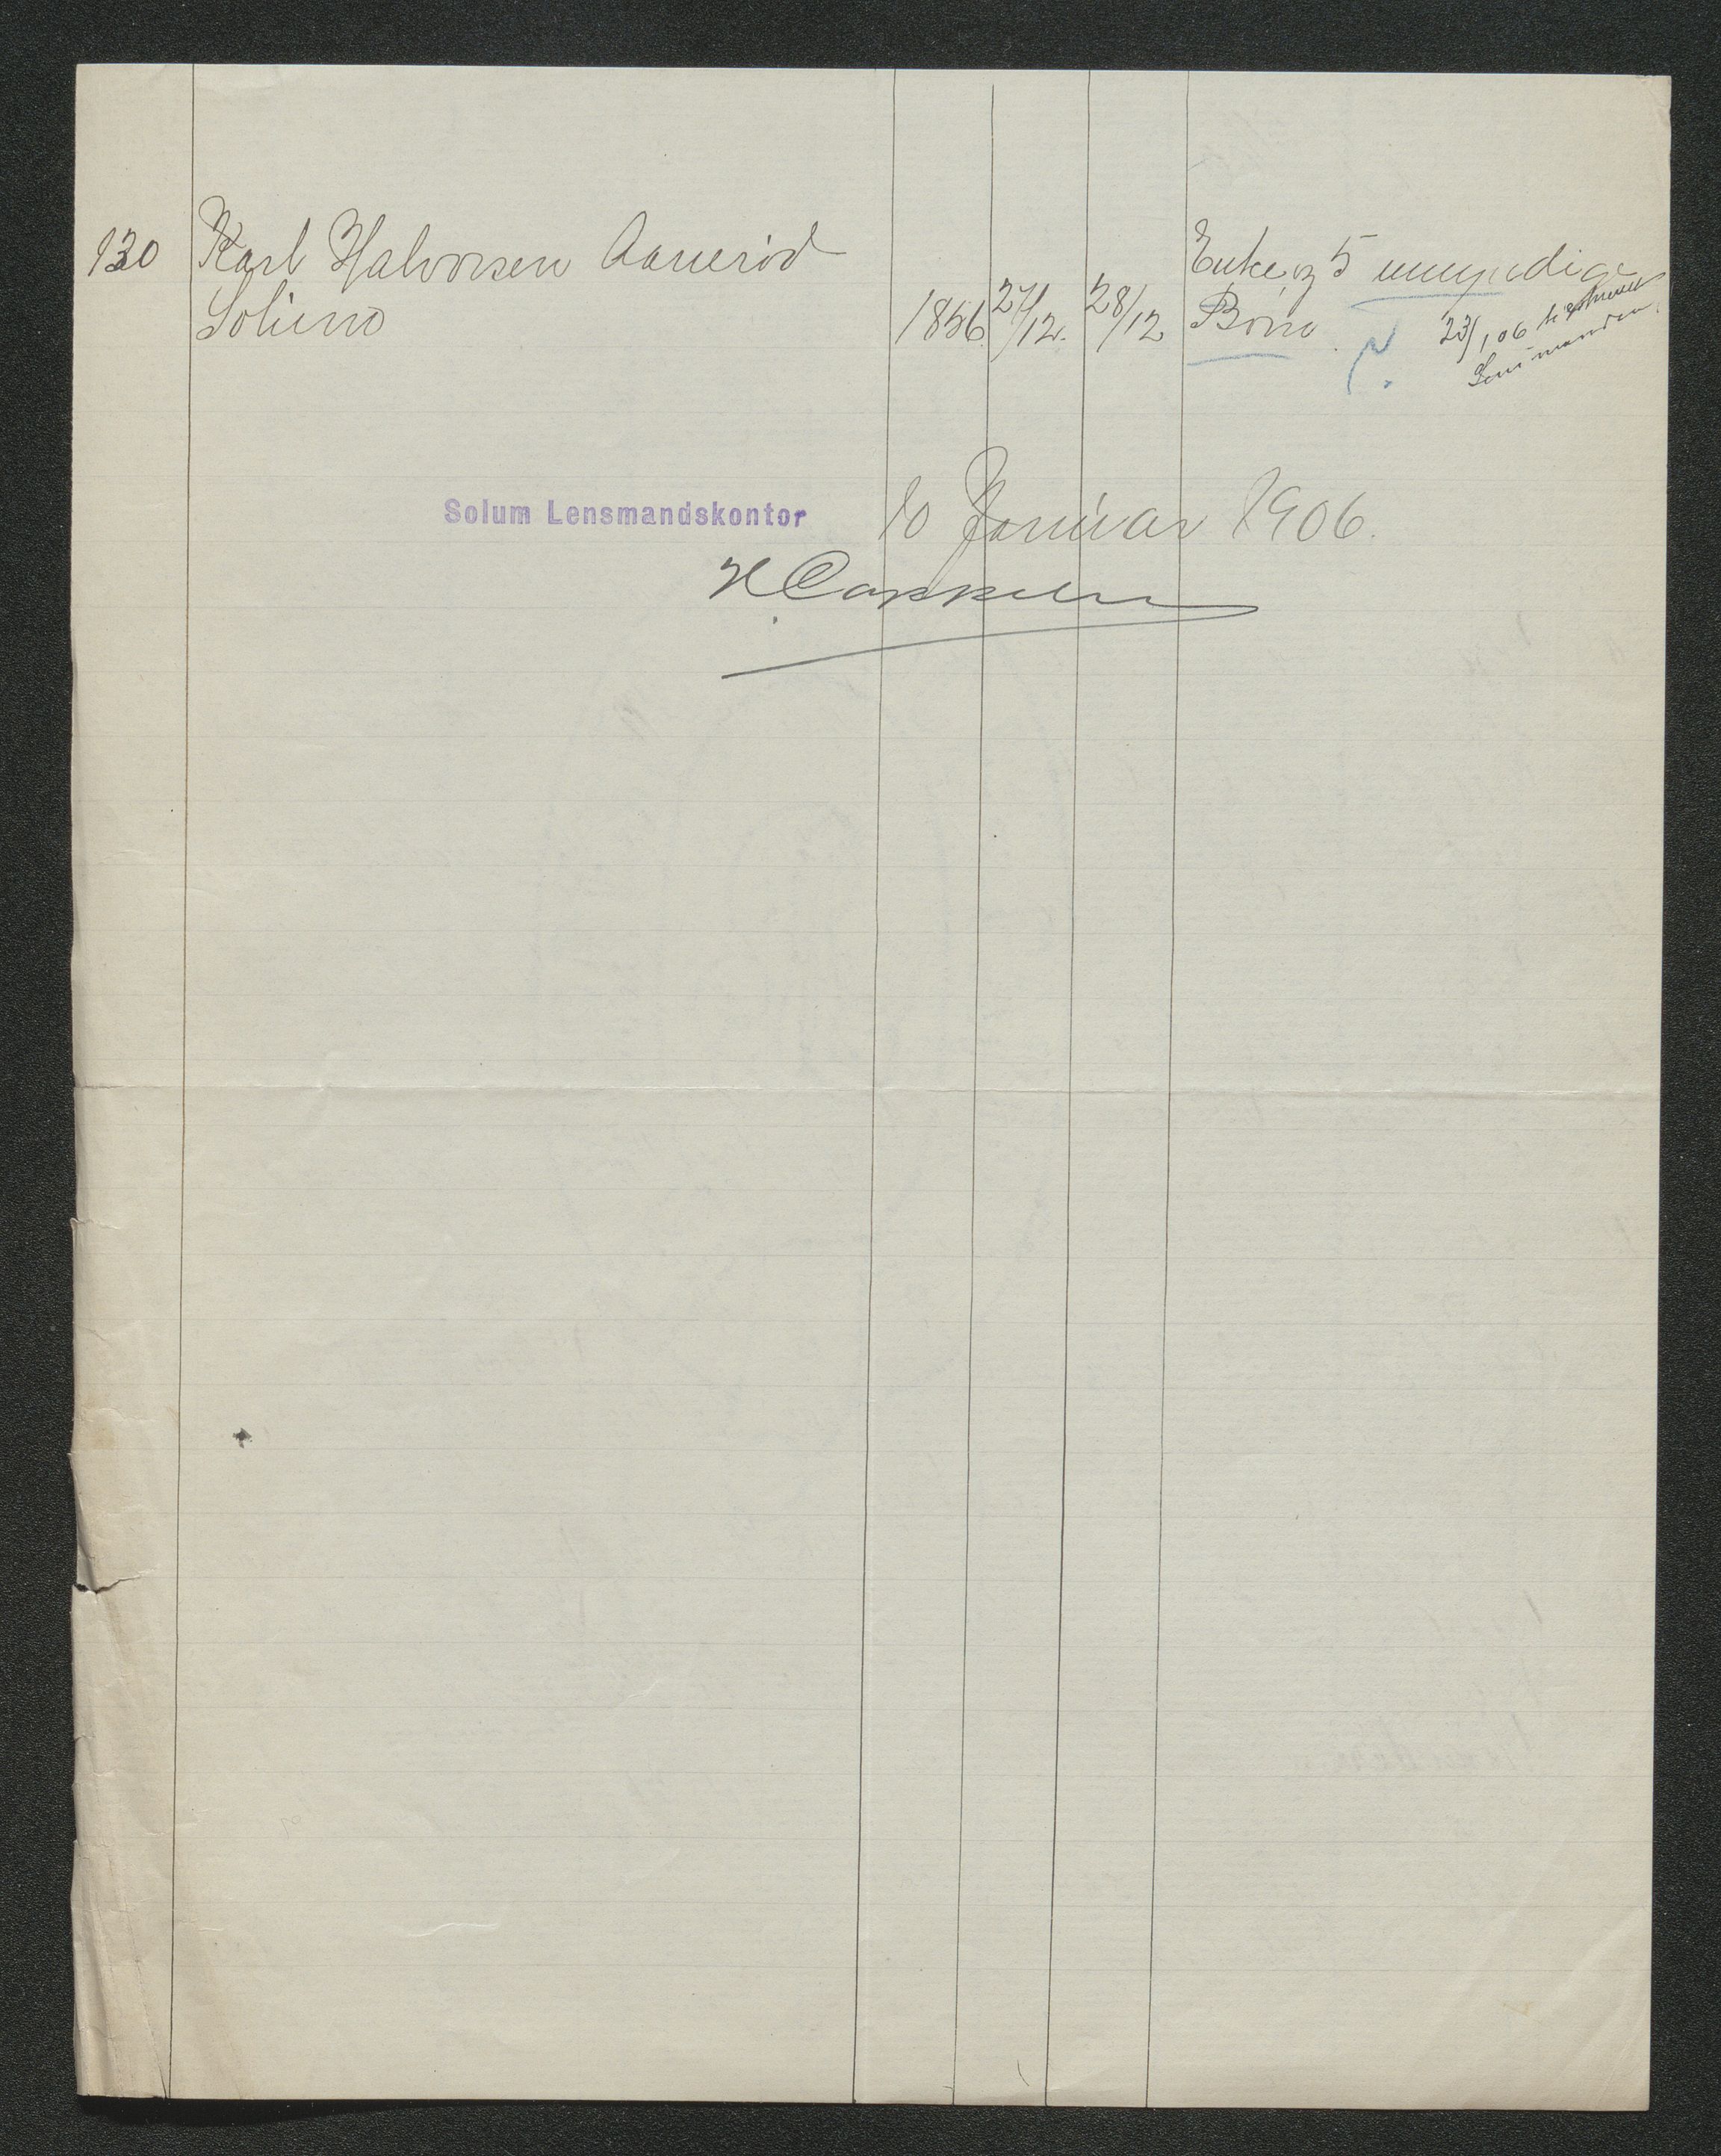 130 Karl Halvorsen Aanerød
Solum 1856 27/12. 28/12
Enke og 5 umyndige
Børn
23/1 06 tilskrevet
Lensmanden.
Solum Lensmandskontor 10 Januar 1906.
H Cappelen